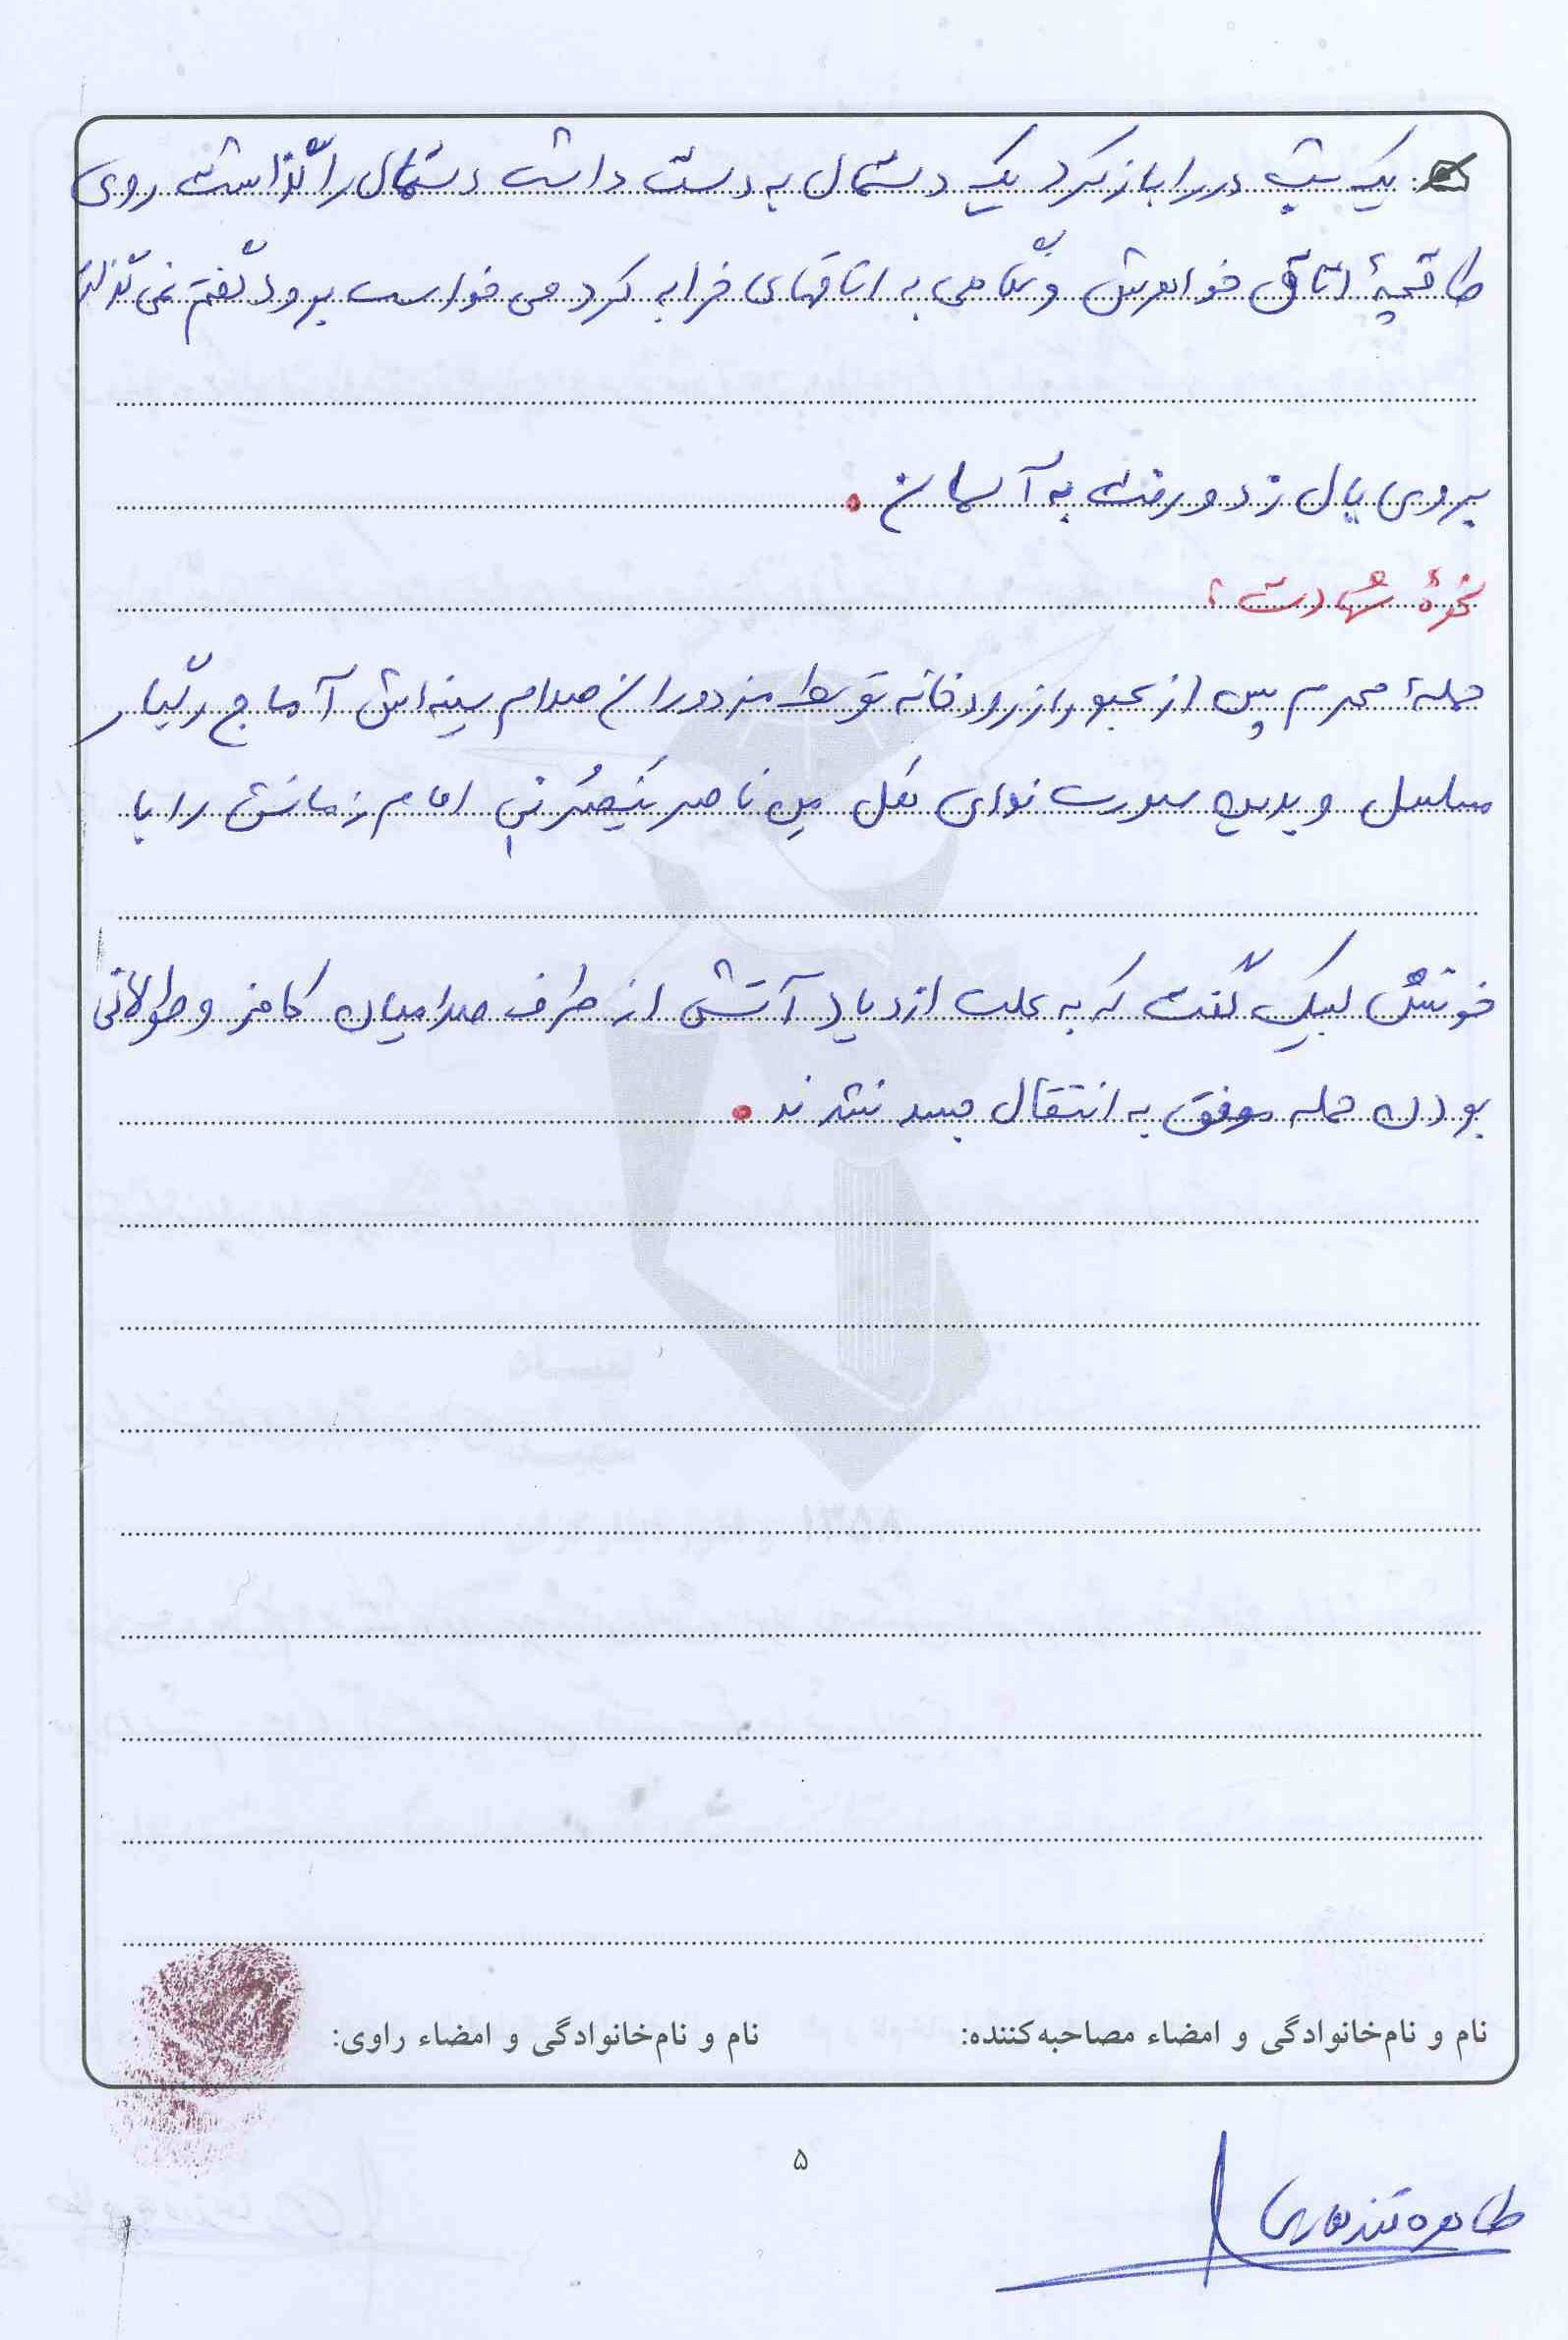 یک شب در را باز کرد یک دستمال به دست داشت دستمال را گذاشت روی
طاقچهٔ اتاق خواهرش و نگاهی به اتاقهای خرابه کرد می خواست برود گفتم نمی گذارم
بروی بال زد و رفت به آسمان.
نحوهٔ شهادت:
حملهٔ محرم پس از عبور از رودخانه توسط مزدوران صدام سینه‌اش آماج رگبار
مسلسل و بدین صورت ندای هَل مِن ناصر یَنصُرنی امام زمانش را با
خونش لبیک گفت که به علت ازدیاد آتش از طرف صدامیان کافر و طولانی
بودن حمله موفق به انتقال جسد نشدند.
نام و نام‌خانوادگی و امضاء مصاحبه‌کننده:
نام و نام‌خانوادگی و امضاء راوی:
۵
طاهره